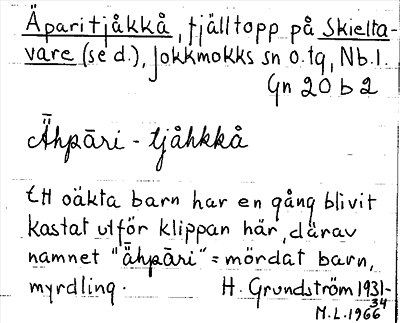 Äparitjåkkå, fjälltopp på Skielta-
vare (se d.), Jokkmokks sn o.tg, Nb.l.
Gn 20 b 2
Ähpāri - tjåhkkå
Ett oäkta barn har en gång blivit
kastat utför klippan här, därav
namnet "ähpāri" = mördat barn,
myrdling. H. Grundström 1931-
34
M.L. 1966